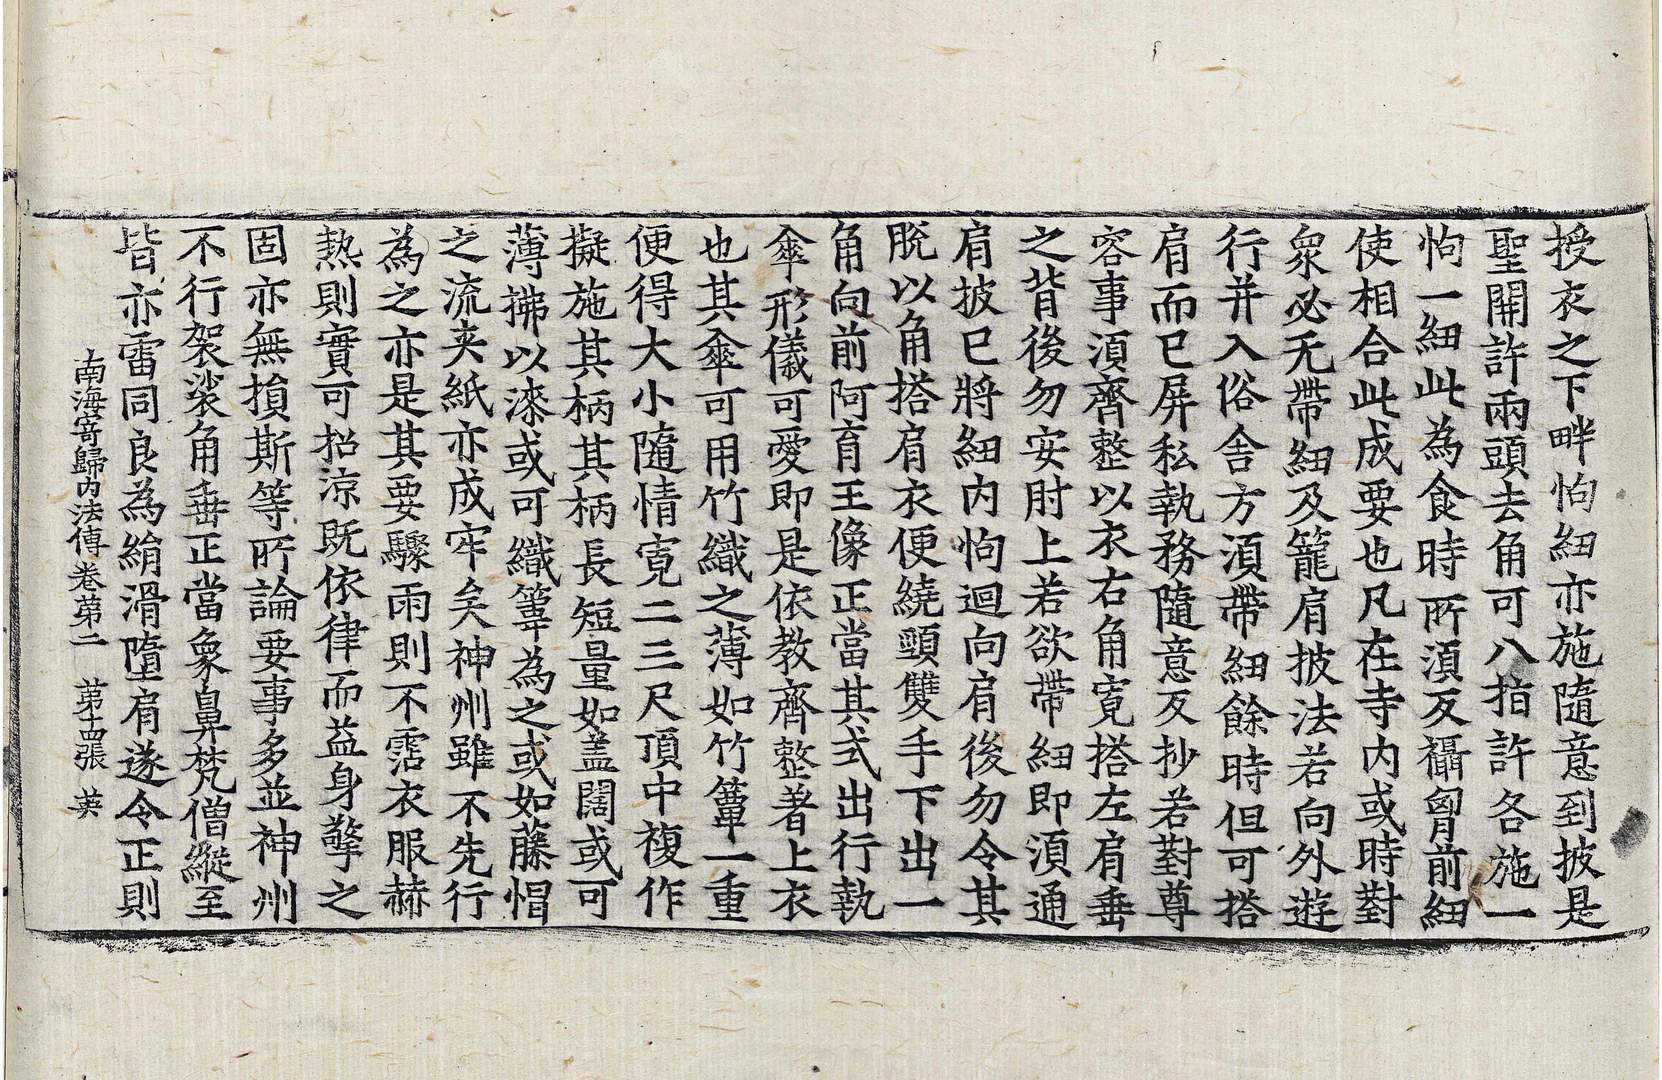 授衣之下畔怐紐亦施隨意到披是
聖開許兩頭去角可八指許各施一
怐一紐此為食時所湏反襵胷前紐
使相合此成要也凡在寺內或時對
衆必无帶紐及籠肩披法若向外遊
行并入俗舍方湏帶紐餘時但可搭
肩而已屏私執務隨意反抄若對尊
容事湏齊整以衣右角寬搭左肩垂
之背後勿安肘上若欲帶紐即湏通
肩披已將紐內怐迴向肩後勿令其
脫以角搭肩衣便繞頸雙手下出一
角向前阿育王像正當其式出行執
傘形儀可愛即是依教齊整著上衣
也其傘可用竹織之薄如竹簞一重
便得大小隨情寬二三尺頂中複作
擬施其柄其柄長短量如盖闊或可
薄拂以漆或可織葦為之或如藤帽
之流夾紙亦成牢矣神州雖不先行
為之亦是其要驟雨則不霑衣服赫
熱則實可招涼既依律而益身擎之
固亦無損斯等所論要事多並神州
不行袈裟角垂正當象鼻梵僧縱至
皆亦雷同良為絹滑墮肩遂令正則
南海寄歸內法傳卷第二 第十四張 英